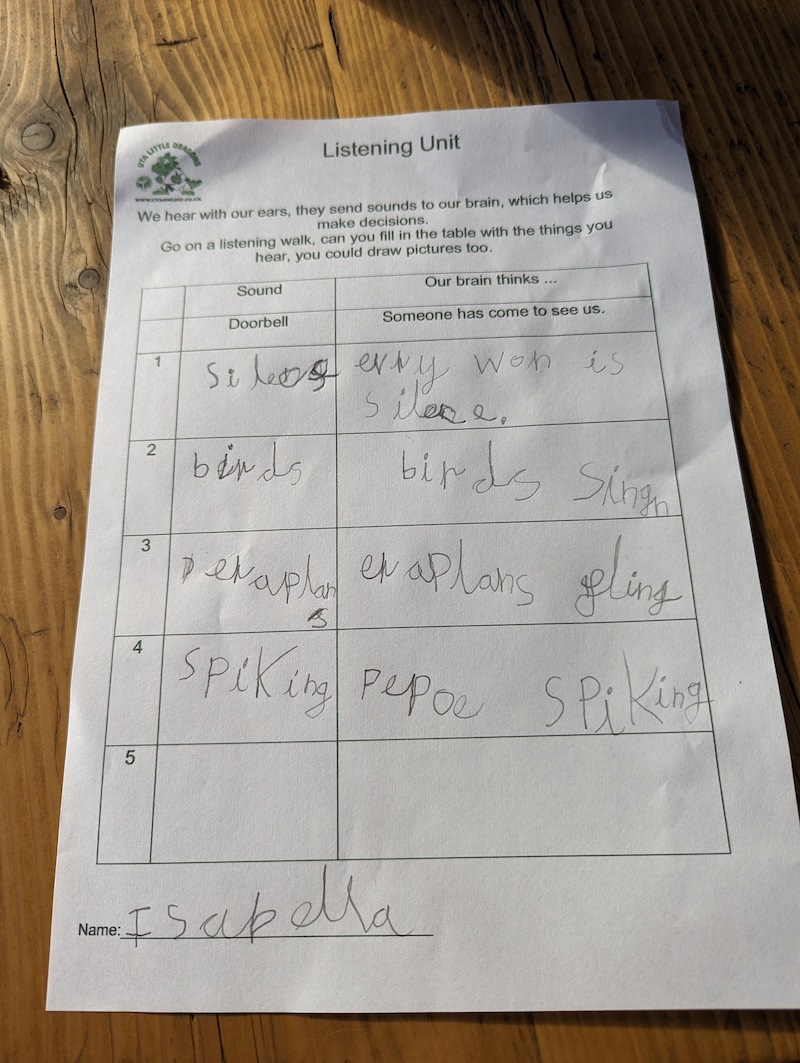 UYA LITTLE DRAGONS
Listening Unit
We hear with our ears, they send sounds to our brain, which helps us
make decisions.
Go on a listening walk, can you fill in the table with the things you
hear, you could draw pictures too.
Sound
Our brain thinks ...
Doorbell
Someone has come to see us.
1
erry won is
2
birds
birds Singn
3
eraplan
s
eraplans
4
SPiKing
PePoe SPiKing
5
Name: Isabella